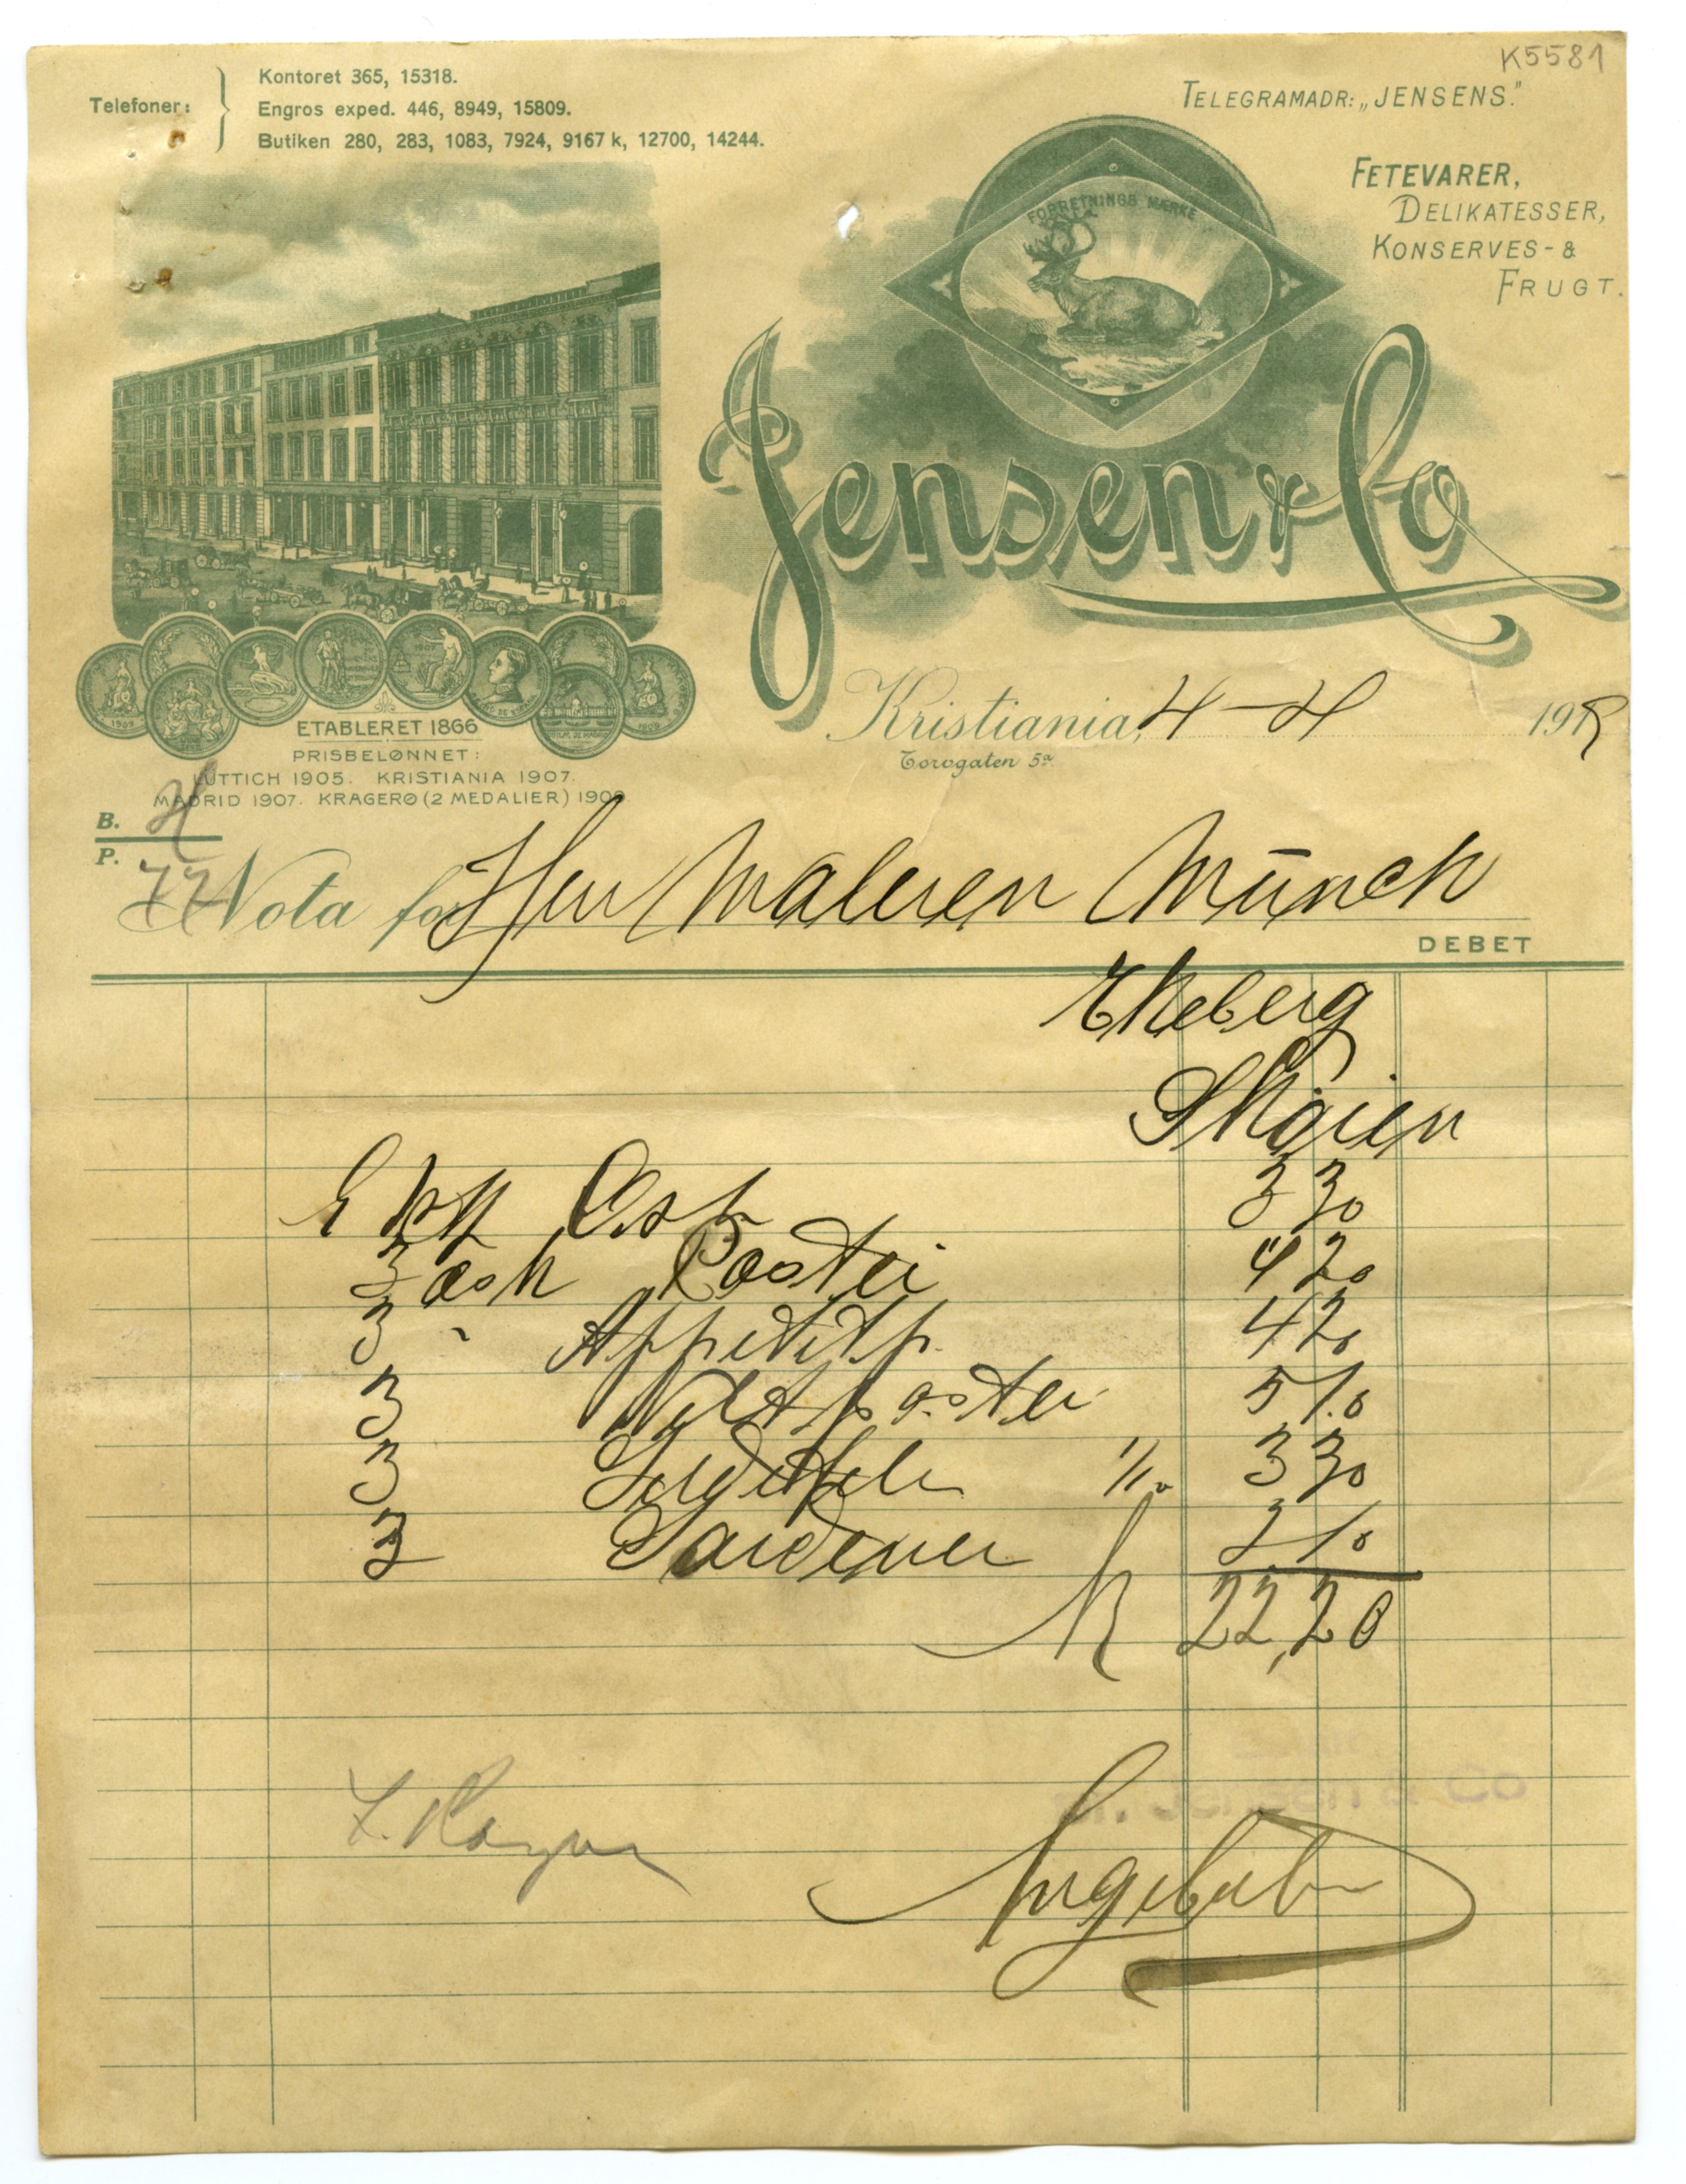 K5581
Telefoner:
Kontoret 365, 15318.
Engros exped. 446, 8949, 15809.
Butiken 280, 283, 1083, 7924, 9167 k, 12700, 14244.
TELEGRAMADR: „JENSENS."
FETEVARER,
DELIKATESSER,
KONSERVES- &
FRUGT.
FORRETNINGS MÆRKE
Jensen & Co
ETABLERET 1866
PRISBELØNNET:
LÜTTICH 1905. KRISTIANIA 1907.
MADRID 1907. KRAGERØ (2 MEDALIER) 1909
Kristiania, 4-4 191
Torvgaten 5a
B.
P. 77
Nota for Herr Maleren Münch
DEBET
Ekeberg
Skøien
Ost 3 30
3 æsk Postei 4 20
3 " Appetitsp. 4 20
3 Vildtpostei 5 10
3 1/10 3 30
3 Sardener 2 10
Kr 22,20
Jensen & Co